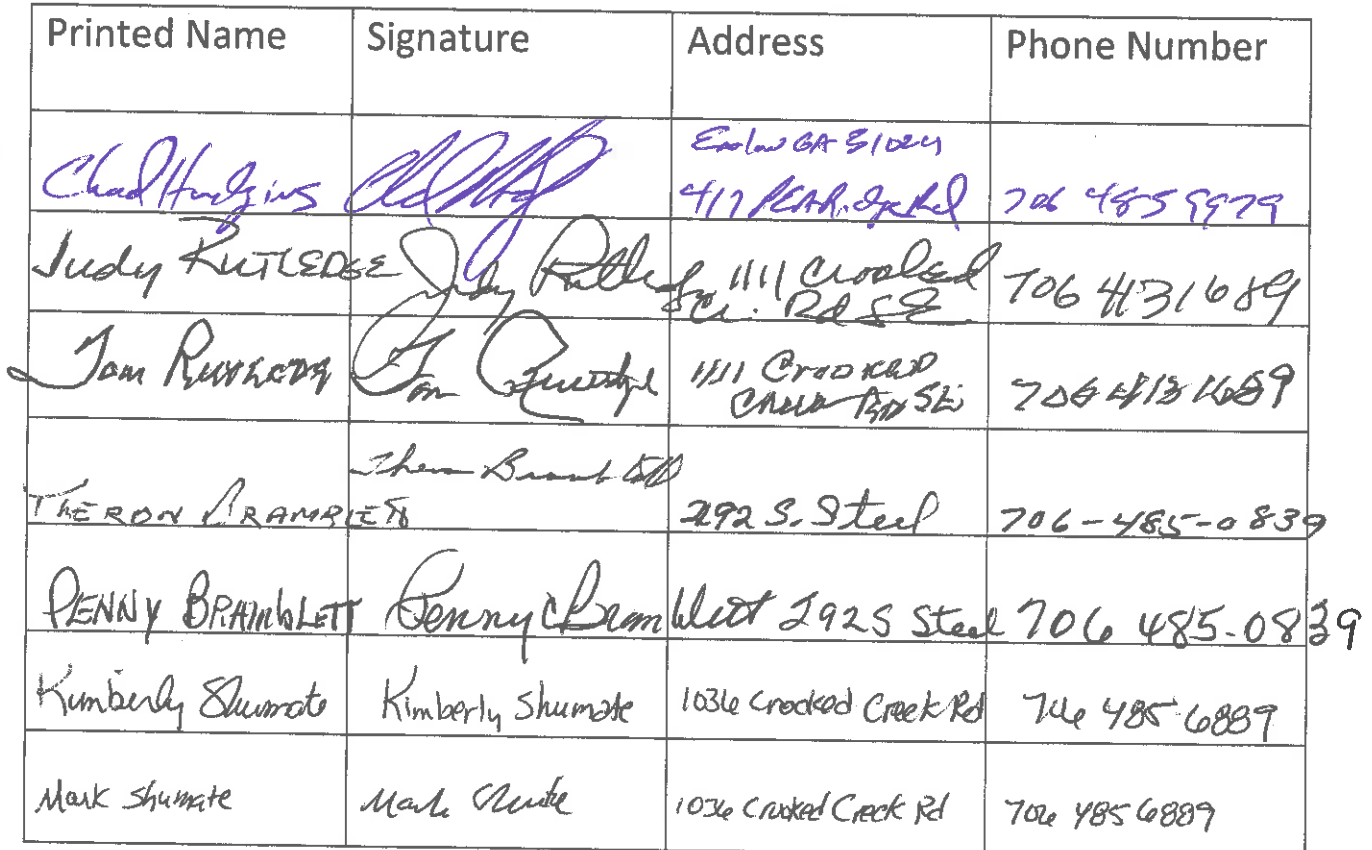 Printed Name Signature Address Phone Number
Eaton GA 31024
Chad Hudgins 417 Pea Ridge Rd 706 485 9979
Judy RUTLEDGE Judy Rutledge 1111 Crooked
Cr. Rd SE 706 4131689
Tom RUTLEDGE Tom 1111 CROOKED
CREEK RD SE 706 413 1689
THERON BRAMBLETT 292 S. Steel 706-485-0839
PENNY BRAMBLETT Penny C Bramblett 292 S Steel 706 485-0839
Kimberly Shumate Kimberly Shumate 1036 Crooked Creek Rd 706 485 6889
Mark Shumate Mark 1036 Crooked Creek Rd 706 485 6889